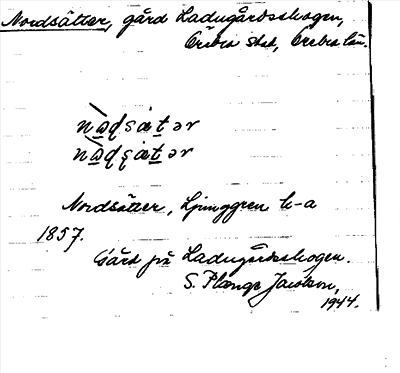 Nordsätter, gård Ladugårdsskogen,
Örebro stad, Örebro län.
Nordsätter, Ljunggren k-a
1857.
Gård på Ladugårdsskogen.
S. Plænge Jacobson,
1944.